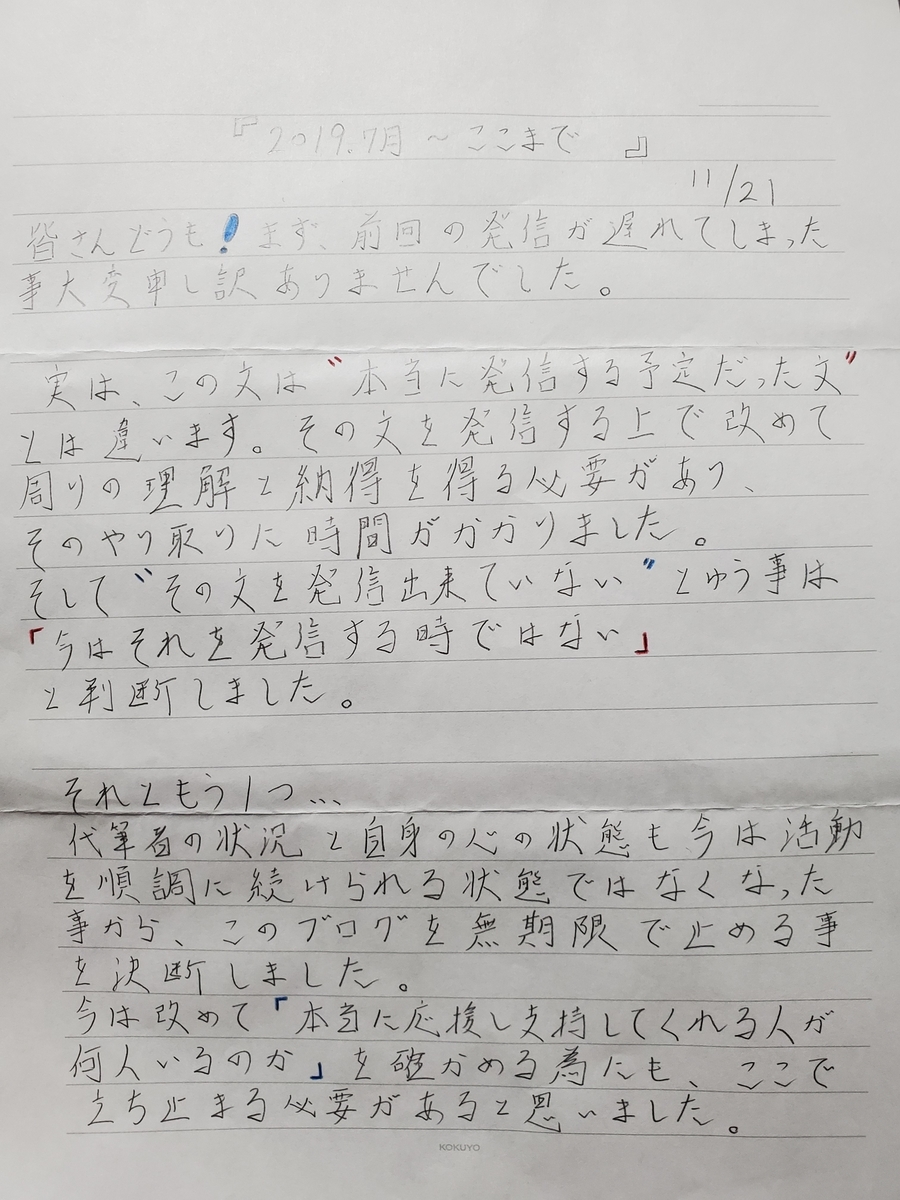 『2019.7月 ~ ここまで 』
11/21
皆さんどうも! まず、前回の発信が遅れてしまった
事大変申し訳ありませんでした。
実は、この文は"本当に発信する予定だった文"
とは違います。その文を発信する上で改めて
周りの理解と納得を得る必要があり、
そのやり取りに時間がかかりました。
そして"その文を発信出来ていない"とゆう事は
「今はそれを発信する時ではない」
と判断しました。
それともう1つ...
代筆者の状況と自身の心の状態も今は活動
を順調に続けられる状態ではなくなった
事から、このブログを無期限で止める事
を決断しました。
今は改めて「本当に応援し支持してくれる人が
何人いるのか」を確かめる為にも、ここで
立ち止まる必要があると思いました。
KOKUYO